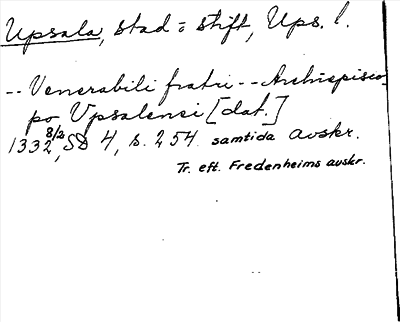 Upsala, stad o stift, Ups. l.
-- Venerabili fratri -- Archiepisco-
po Vpsalensi [dat.]
1332 8/2, SD 4, s. 254. samtida avskr.
Tr. eft. Fredenheims avskr.